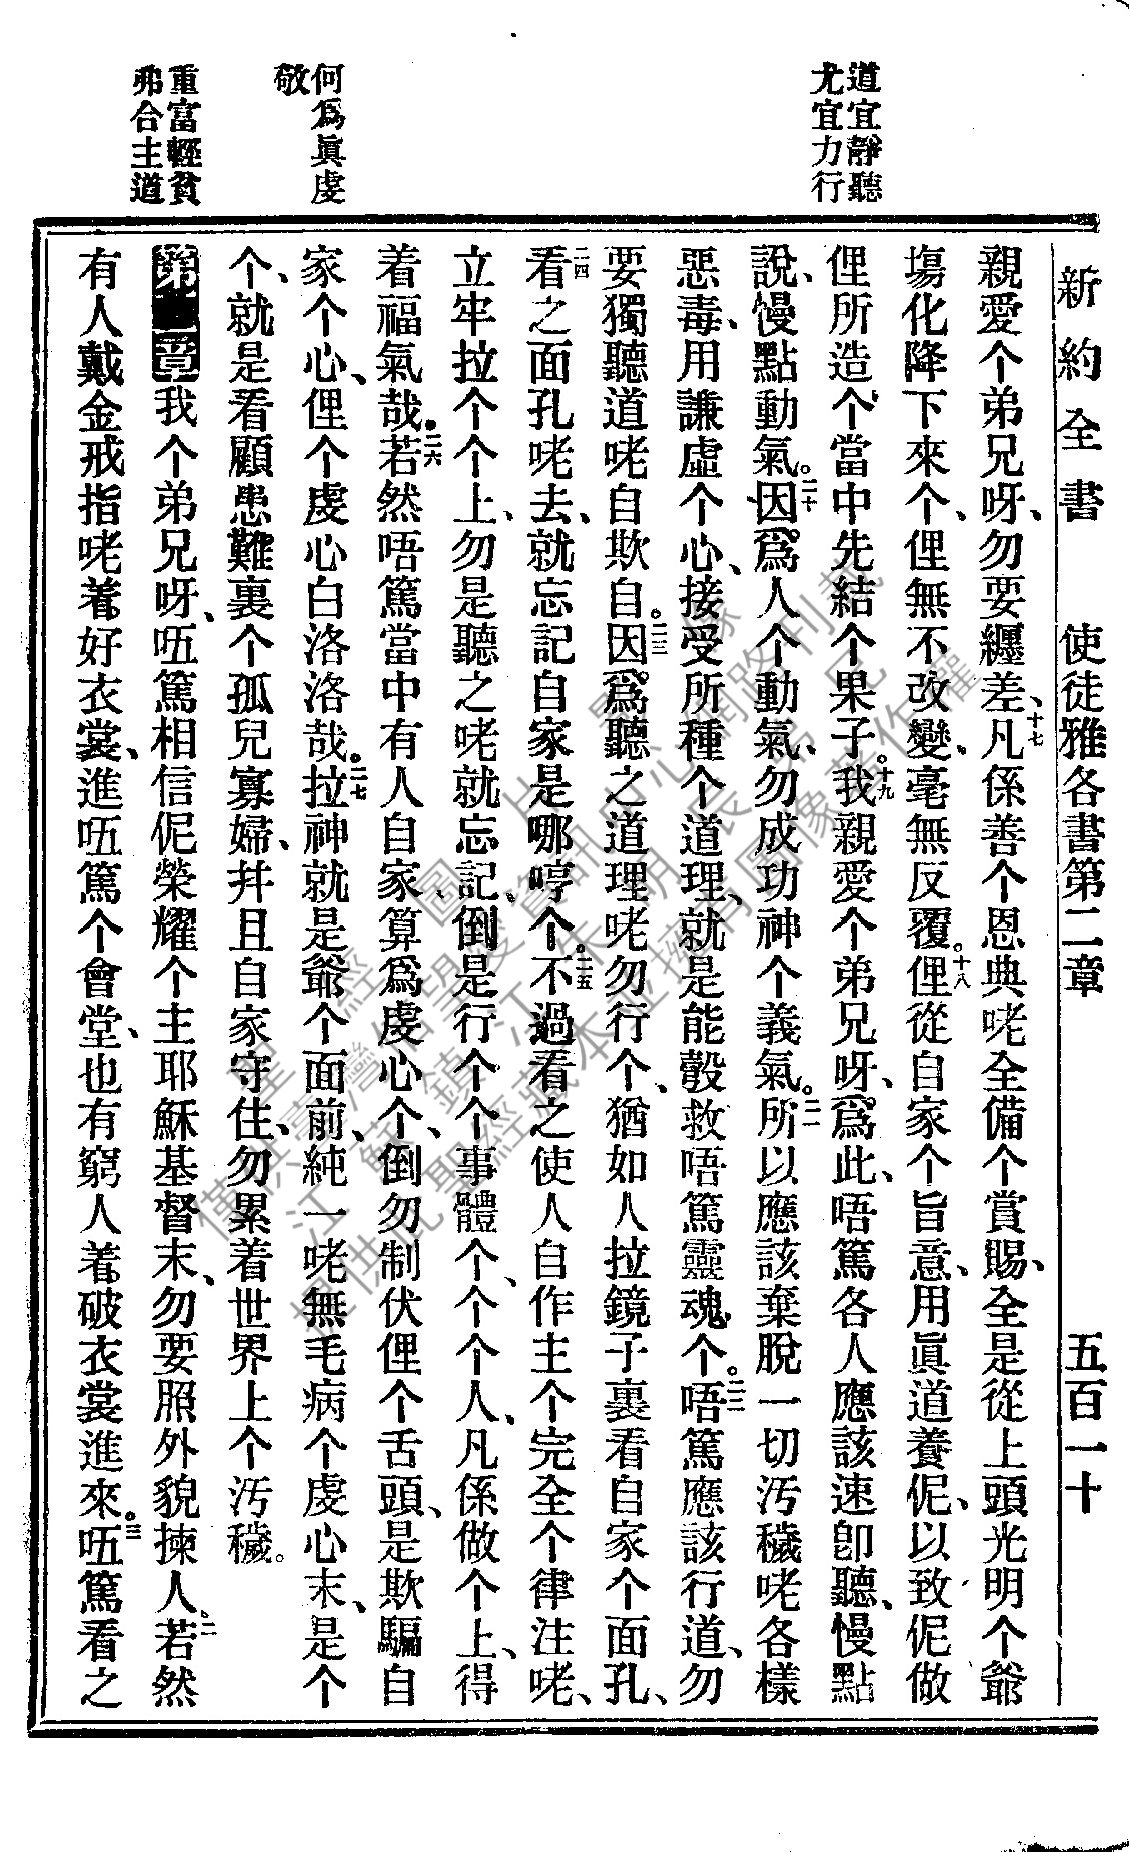 道宜靜聽
尤宜力行
何爲眞虔
敬
重富輕貧
弗合主道
新約全書 使徒雅各書第二章 五百一十
親愛个弟兄呀、勿要纒差、十七凡係善个恩典咾全備个賞賜、全是從上頭光明个爺
塲化降下來个、俚無不改變、毫無反覆。十八俚從自家个旨意、用眞道養伲、以致伲做
俚所造个當中先結个果子。十九我親愛个弟兄呀、爲此、唔篤各人應該速卽聽、慢點
說、慢點動氣。二十因爲人个動氣、勿成功神个義氣。二一所以應該棄脫一切汚穢咾各樣
惡毒、用謙虛个心、接受所種个道理、就是能彀救唔篤靈魂个。二二唔篤應該行道、勿
要獨聽道咾自欺自。二三因爲聽之道理咾勿行个、猶如人拉鏡子裏看自家个面孔、
二四看之面孔咾去、就忘記自家是哪哼个。二五不過看之使人自作主个完全个律注咾、
立牢拉个个上、勿是聽之咾就忘記、倒是行个个事體个、个个人、凡係做个上、得
着福氣哉。二六若然唔篤當中有人自家算爲虔心个、倒勿制伏俚个舌頭、是欺騙自
家个心、俚个虔心白洛洛哉。二七拉神就是爺个面前、純一咾無毛病个虔心末、是个
个、就是看顧患難裏个孤兒寡婦、幷且自家守住、勿累着世界上个汚穢。
第二章我个弟兄呀、𠰻篤相信伲榮耀个主耶穌基督末、勿要照外貌揀人。二若然
有人戴金戒指咾着好衣裳、進𠰻篤个會堂、也有窮人着破衣裳進來。三𠰻篤看之
僅供臺灣信望愛資訊中心網路刊載
江蘇鎮江朱明辰弟兄
提供此聖經藏本並擁有圖像著作權